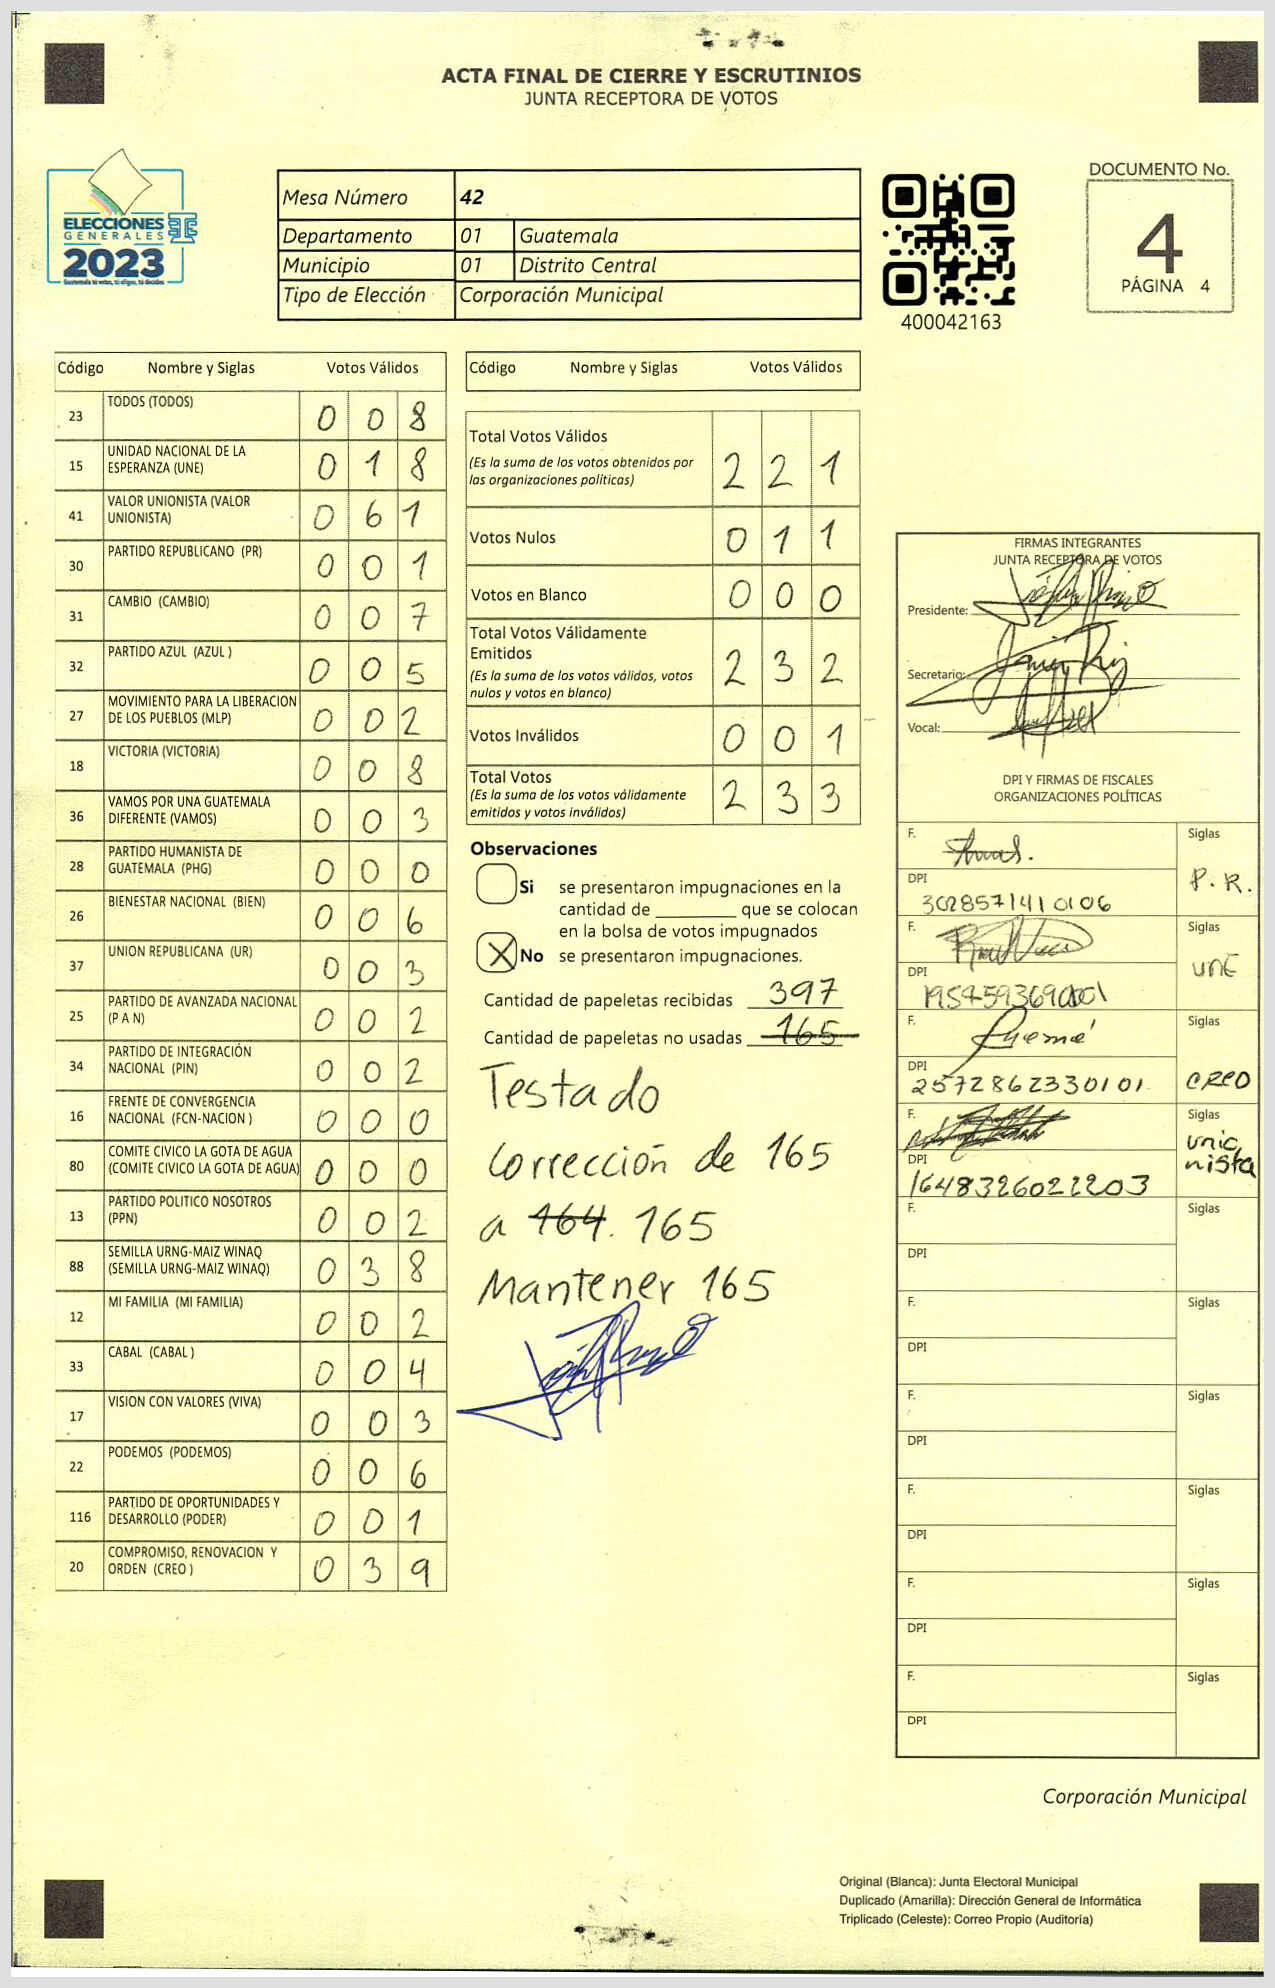 ACTA FINAL DE CIERRE Y ESCRUTINIOS
JUNTA RECEPTORA DE VOTOS
ELECCIONES
GENERALES
2023
Mesa Número 42
Departamento 01 Guatemala
Municipio 01 Distrito Central
Tipo de Elección Corporación Municipal
400042163
DOCUMENTO No.
4
PÁGINA 4
Código Nombre y Siglas Votos Válidos
23 TODOS (TODOS) 0 0 8
15 UNIDAD NACIONAL DE LA ESPERANZA (UNE) 0 1 8
41 VALOR UNIONISTA (VALOR UNIONISTA) 0 6 1
30 PARTIDO REPUBLICANO (PR) 0 0 1
31 CAMBIO (CAMBIO) 0 0 7
32 PARTIDO AZUL (AZUL ) 0 0 5
27 MOVIMIENTO PARA LA LIBERACION DE LOS PUEBLOS (MLP) 0 0 2
18 VICTORIA (VICTORIA) 0 0 8
36 VAMOS POR UNA GUATEMALA DIFERENTE (VAMOS) 0 0 3
28 PARTIDO HUMANISTA DE GUATEMALA (PHG) 0 0 0
26 BIENESTAR NACIONAL (BIEN) 0 0 6
37 UNION REPUBLICANA (UR) 0 0 3
25 PARTIDO DE AVANZADA NACIONAL (P A N) 0 0 2
34 PARTIDO DE INTEGRACIÓN NACIONAL (PIN) 0 0 2
16 FRENTE DE CONVERGENCIA NACIONAL (FCN-NACION ) 0 0 0
80 COMITE CIVICO LA GOTA DE AGUA (COMITE CIVICO LA GOTA DE AGUA) 0 0 0
13 PARTIDO POLITICO NOSOTROS (PPN) 0 0 2
88 SEMILLA URNG-MAIZ WINAQ (SEMILLA URNG-MAIZ WINAQ) 0 3 8
12 MI FAMILIA (MI FAMILIA) 0 0 2
33 CABAL (CABAL ) 0 0 4
17 VISION CON VALORES (VIVA) 0 0 3
22 PODEMOS (PODEMOS) 0 0 6
116 PARTIDO DE OPORTUNIDADES Y DESARROLLO (PODER) 0 0 1
20 COMPROMISO, RENOVACION Y ORDEN (CREO ) 0 3 9
Código Nombre y Siglas Votos Válidos
Total Votos Válidos 2 2 1
(Es la suma de los votos obtenidos por
las organizaciones políticas)
Votos Nulos 0 1 1
Votos en Blanco 0 0 0
Total Votos Válidamente
Emitidos 2 3 2
(Es la suma de los votos válidos, votos
nulos y votos en blanco)
Votos Inválidos 0 0 1
Total Votos 2 3 3
(Es la suma de los votos válidamente
emitidos y votos inválidos)
Observaciones
Si se presentaron impugnaciones en la
cantidad de ________ que se colocan
en la bolsa de votos impugnados
No se presentaron impugnaciones.
Cantidad de papeletas recibidas 397
Cantidad de papeletas no usadas 165
Testado
Corrección de 165
a 164. 165
Mantener 165
FIRMAS INTEGRANTES
JUNTA RECEPTORA DE VOTOS
Presidente:
Secretario:
Vocal:
DPI Y FIRMAS DE FISCALES
ORGANIZACIONES POLÍTICAS
F. Siglas
DPI P.R.
3028571410106
F. Siglas
DPI UNE
F. Siglas
DPI CREO
2572862330101
F. Siglas
DPI unio
nista
1648326022203
F. Siglas
DPI
F. Siglas
DPI
F. Siglas
DPI
F. Siglas
DPI
F. Siglas
DPI
F. Siglas
DPI
Corporación Municipal
Original (Blanca): Junta Electoral Municipal
Duplicado (Amarilla): Dirección General de Informática
Triplicado (Celeste): Correo Propio (Auditoría)